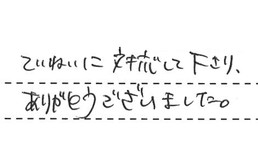 ていねいに対応して下さり、
ありがとうございました。